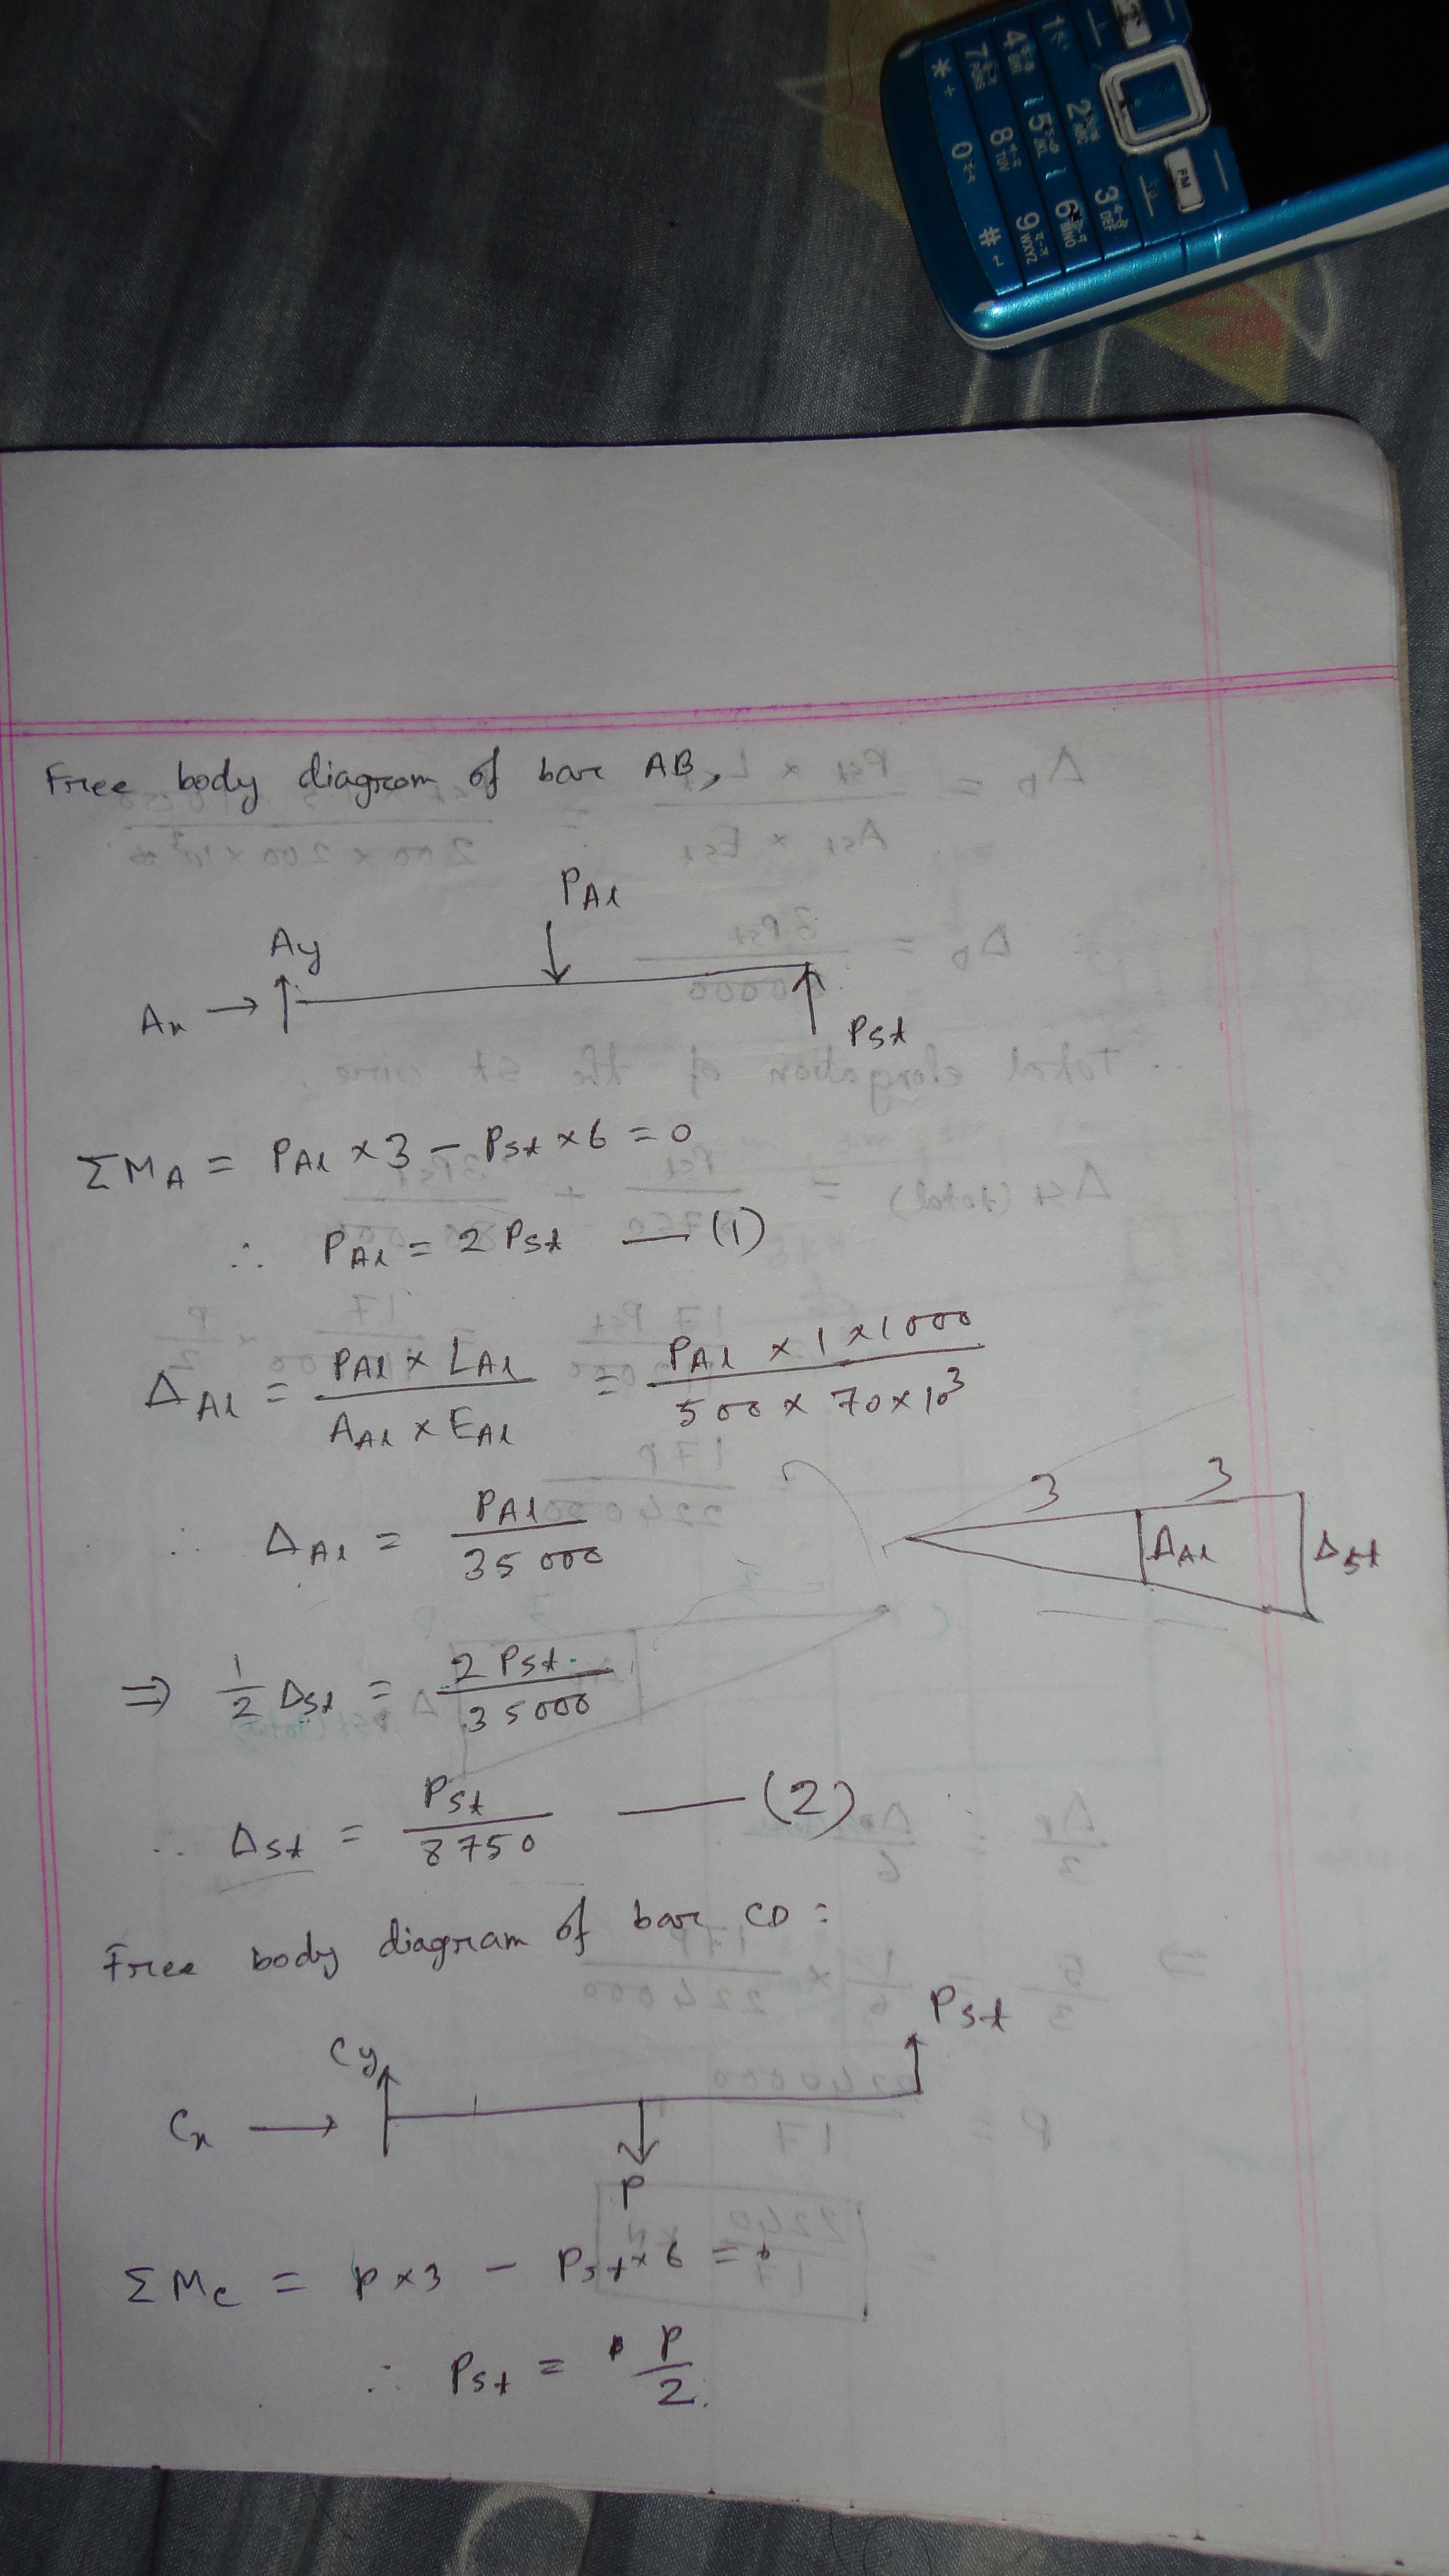 Free body diagram of bar AB,
P_Al
Ay
Ax →
P_st
ΣM_A = P_Al × 3 − P_st × 6 = 0
∴ P_Al = 2 P_st — (1)
Δ_Al = (P_Al × L_Al) / (A_Al × E_Al) = (P_Al × 1 × 1000) / (500 × 70 × 10³)
∴ Δ_Al = P_Al / 35000
3 3
Δ_Al Δ_st
⇒ 1/2 Δ_st = 2 P_st / 35000
∴ Δ_st = P_st / 8750 — (2)
Free body diagram of bar CD :
P_st
Cy
Cx →
P
ΣM_C = P × 3 − P_st × 6 = 0
∴ P_st = P/2.
1 2 ABC 3 DEF
4 GHI 5 JKL 6 MNO
7 PQRS 8 TUV 9 WXYZ
* + 0 #
FM